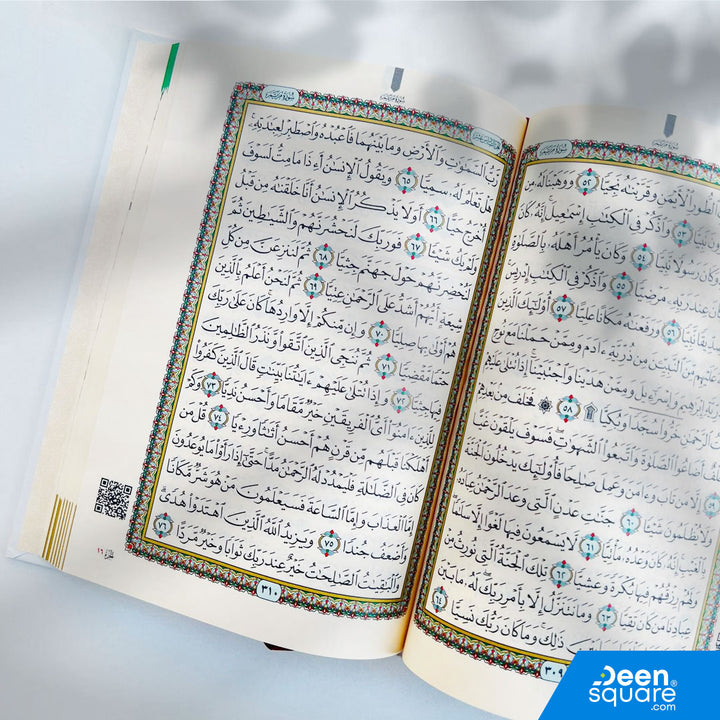 سُورَةُ مَرْيَمَ
ٱلطُّورِ ٱلْأَيْمَنِ وَقَرَّبْنَٰهُ نَجِيًّا ٥٢ وَوَهَبْنَا لَهُۥ مِن
نَبِيًّا ٥٣ وَٱذْكُرْ فِى ٱلْكِتَٰبِ إِسْمَٰعِيلَ إِنَّهُۥ كَانَ
وَكَانَ رَسُولًا نَّبِيًّا ٥٤ وَكَانَ يَأْمُرُ أَهْلَهُۥ بِٱلصَّلَوٰةِ
عِندَ رَبِّهِۦ مَرْضِيًّا ٥٥ وَٱذْكُرْ فِى ٱلْكِتَٰبِ إِدْرِيسَ
نَّبِيًّا ٥٦ وَرَفَعْنَٰهُ مَكَانًا عَلِيًّا ٥٧ أُو۟لَٰٓئِكَ ٱلَّذِينَ
عَلَيْهِم مِّنَ ٱلنَّبِيِّۦنَ مِن ذُرِّيَّةِ ءَادَمَ وَمِمَّنْ حَمَلْنَا مَعَ نُوحٍ
إِبْرَٰهِيمَ وَإِسْرَٰٓءِيلَ وَمِمَّنْ هَدَيْنَا وَٱجْتَبَيْنَآ إِذَا تُتْلَىٰ عَلَيْهِمْ
ٱلرَّحْمَٰنِ خَرُّوا۟ سُجَّدًا وَبُكِيًّا ۩ ٥٨ ۞ فَخَلَفَ مِنۢ بَعْدِهِمْ
أَضَاعُوا۟ ٱلصَّلَوٰةَ وَٱتَّبَعُوا۟ ٱلشَّهَوَٰتِ فَسَوْفَ يَلْقَوْنَ غَيًّا
٥٩ إِلَّا مَن تَابَ وَءَامَنَ وَعَمِلَ صَٰلِحًا فَأُو۟لَٰٓئِكَ يَدْخُلُونَ ٱلْجَنَّةَ
وَلَا يُظْلَمُونَ شَيْـًٔا ٦٠ جَنَّٰتِ عَدْنٍ ٱلَّتِى وَعَدَ ٱلرَّحْمَٰنُ عِبَادَهُۥ
بِٱلْغَيْبِ إِنَّهُۥ كَانَ وَعْدُهُۥ مَأْتِيًّا ٦١ لَّا يَسْمَعُونَ فِيهَا لَغْوًا إِلَّا سَلَٰمًا
وَلَهُمْ رِزْقُهُمْ فِيهَا بُكْرَةً وَعَشِيًّا ٦٢ تِلْكَ ٱلْجَنَّةُ ٱلَّتِى نُورِثُ مِنْ
عِبَادِنَا مَن كَانَ تَقِيًّا ٦٣ وَمَا نَتَنَزَّلُ إِلَّا بِأَمْرِ رَبِّكَ لَهُۥ مَا بَيْنَ
ذَٰلِكَ وَمَا كَانَ رَبُّكَ نَسِيًّا ٦٤
٣٠٩
سُورَةُ مَرْيَمَ
رَّبُّ ٱلسَّمَٰوَٰتِ وَٱلْأَرْضِ وَمَا بَيْنَهُمَا فَٱعْبُدْهُ وَٱصْطَبِرْ لِعِبَٰدَتِهِۦ
هَلْ تَعْلَمُ لَهُۥ سَمِيًّا ٦٥ وَيَقُولُ ٱلْإِنسَٰنُ أَءِذَا مَا مِتُّ لَسَوْفَ
أُخْرَجُ حَيًّا ٦٦ أَوَلَا يَذْكُرُ ٱلْإِنسَٰنُ أَنَّا خَلَقْنَٰهُ مِن قَبْلُ
وَلَمْ يَكُ شَيْـًٔا ٦٧ فَوَرَبِّكَ لَنَحْشُرَنَّهُمْ وَٱلشَّيَٰطِينَ ثُمَّ
لَنُحْضِرَنَّهُمْ حَوْلَ جَهَنَّمَ جِثِيًّا ٦٨ ثُمَّ لَنَنزِعَنَّ مِن كُلِّ
شِيعَةٍ أَيُّهُمْ أَشَدُّ عَلَى ٱلرَّحْمَٰنِ عِتِيًّا ٦٩ ثُمَّ لَنَحْنُ أَعْلَمُ بِٱلَّذِينَ
هُمْ أَوْلَىٰ بِهَا صِلِيًّا ٧٠ وَإِن مِّنكُمْ إِلَّا وَارِدُهَا كَانَ عَلَىٰ رَبِّكَ
حَتْمًا مَّقْضِيًّا ٧١ ثُمَّ نُنَجِّى ٱلَّذِينَ ٱتَّقَوا۟ وَّنَذَرُ ٱلظَّٰلِمِينَ
فِيهَا جِثِيًّا ٧٢ وَإِذَا تُتْلَىٰ عَلَيْهِمْ ءَايَٰتُنَا بَيِّنَٰتٍ قَالَ ٱلَّذِينَ كَفَرُوا۟
لِلَّذِينَ ءَامَنُوٓا۟ أَىُّ ٱلْفَرِيقَيْنِ خَيْرٌ مَّقَامًا وَأَحْسَنُ نَدِيًّا ٧٣ وَكَمْ
أَهْلَكْنَا قَبْلَهُم مِّن قَرْنٍ هُمْ أَحْسَنُ أَثَٰثًا وَرِءْيًا ٧٤ قُلْ مَن
كَانَ فِى ٱلضَّلَٰلَةِ فَلْيَمْدُدْ لَهُ ٱلرَّحْمَٰنُ مَدًّا حَتَّىٰٓ إِذَا رَأَوْا۟ مَا يُوعَدُونَ
إِمَّا ٱلْعَذَابَ وَإِمَّا ٱلسَّاعَةَ فَسَيَعْلَمُونَ مَنْ هُوَ شَرٌّ مَّكَانًا
وَأَضْعَفُ جُندًا ٧٥ وَيَزِيدُ ٱللَّهُ ٱلَّذِينَ ٱهْتَدَوْا۟ هُدًى
وَٱلْبَٰقِيَٰتُ ٱلصَّٰلِحَٰتُ خَيْرٌ عِندَ رَبِّكَ ثَوَابًا وَخَيْرٌ مَّرَدًّا ٧٦
٣١٠
١٦
Deen
square®
.com